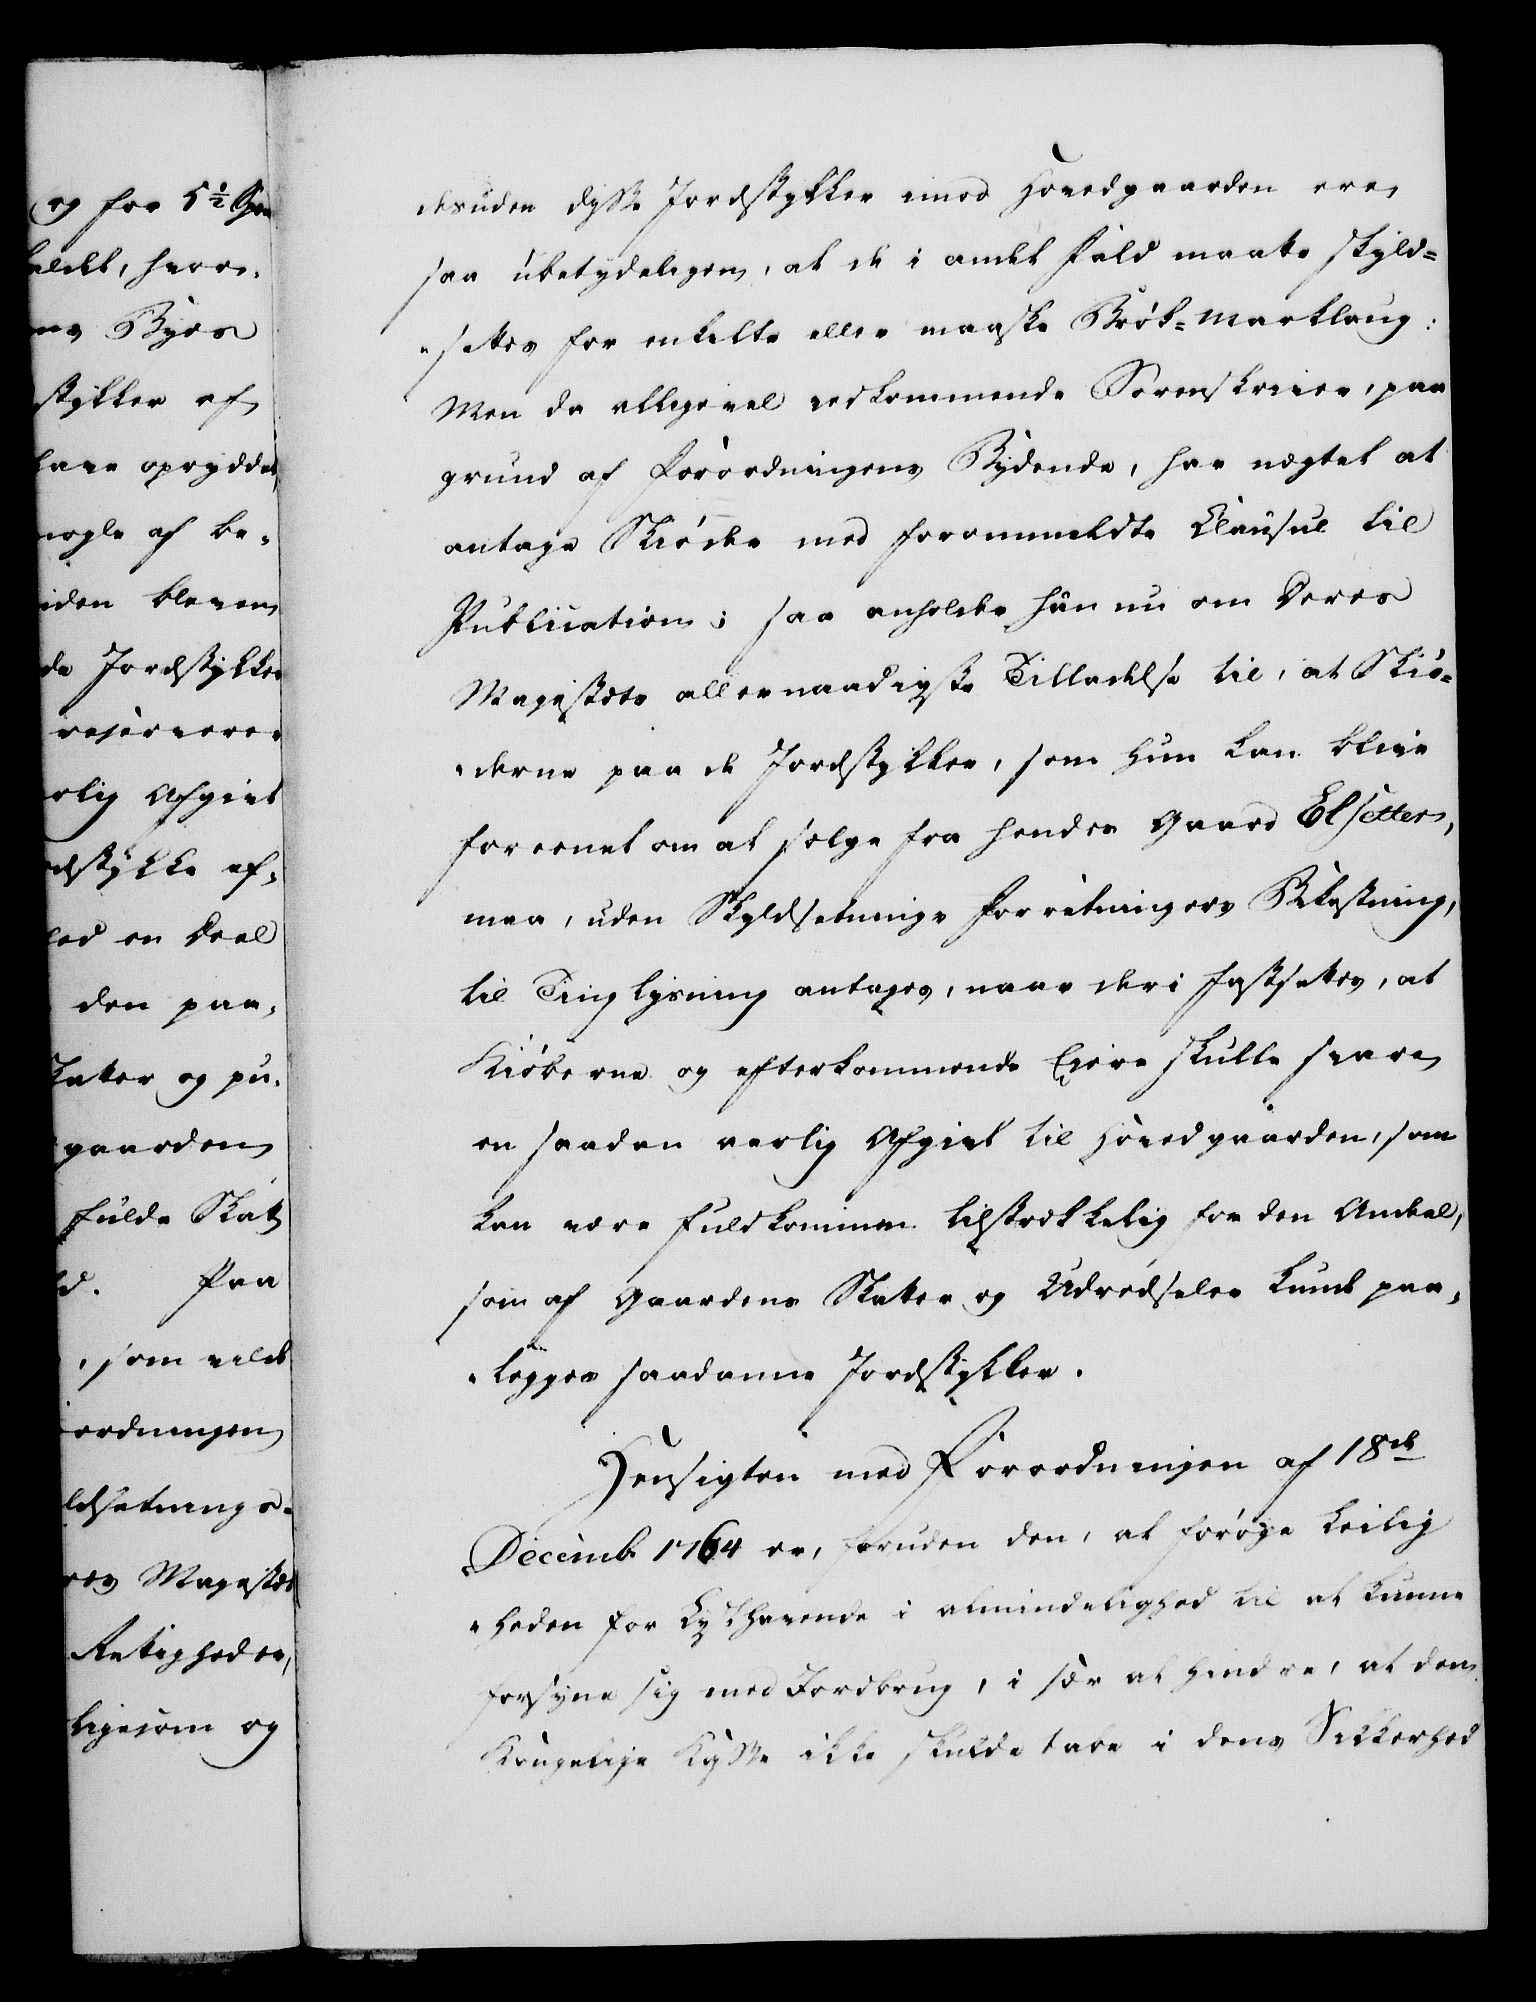 og for 5½ Spe
meldet, hvor-
ens Byes
stykker af
have opryddet,
nogle af be-
siden bleven
de Jordstykker
reserveret
aarlig Afgivt
Jordstykke af-
ved en Deel
den paa-
Skatter og pu-
gaarden
fulde Skat
Paa
, som vilde
ordningen
ldsetnings-
res Majestæt
Rettigheder,
ligesom og
desuden disse Jordstykker imod Hovedgaarden ere
saa ubetydeligen, at de i andet Fald maatte skyld-
-settes for enkelte eller maaske Brøk-Marklaug:
Men da alligevel vedkommende Sorenskriver, paa
grund af Forordningens Bydende, har nægtet at
antage Skiøder med forommeldte Clausul til
Publication; saa anholder hun nu om Deres
Majestæts allernaadigste Tilladelse til, at Skiø-
-derne paa de Jordstykker, som hun kan blive
foreenet om at sælge fra hendes Gaard Elsetter,
maa, uden Skyldsetnings Forretningers Vedtegning,
til Tinglysning antages, naar deri fastsettes, at
Kiøberne og efterkommende Eiere skulle svare
en saadan aarlig Afgivt til Hovedgaarden, som
kan være fuldkommen tilstrækkelig for den Andeel,
som af Gaardens Skatter og Udredseler kunde paa-
-legges saadanne Jordstykker.
Hensigten med Forordningen af 18de
Decemb. 1764 er, foruden den, at forøge Leilig
-heden for Lysthavende i almindelighed til at kunne
forsyne sig med Jordbrug, i sær at hindre, at den
Kongelige Kasse ikke skulde tabe i dens Sikkerhed